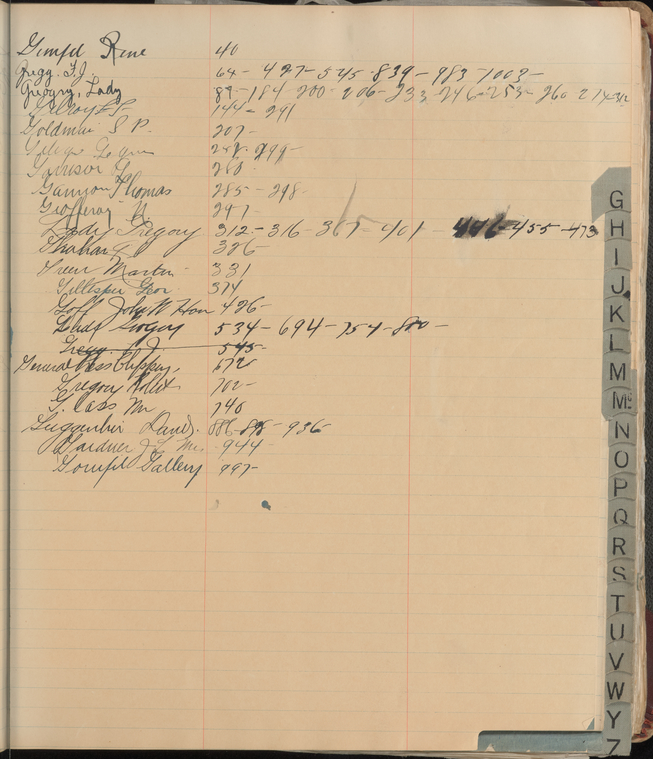 Gimpel Rene 40
Gregg. F.J. 64- 427- 545- 839- 983- 1003-
Gregory, Lady 89- 184- 200- 206- 233 246- 253- 260
144- 291
Goldman S P. 207-
299-
Garrison 280-
Thomas 285- 298-
Geoffroy 297-
Lady Gregory 312- 316- 367- 401 - 455- 473
Graham 326-
Greer Martin 331
Gillespie Geo 374
Goff John W Hon 426-
Lady Gregory 534- 694- 754- 880-
Gregg. F J 545-
General Press Clipping, 672-
Gregory Robert 702-
Glass Mr 740
936-
Gardner J L Mrs 944-
Gimpel Gallery 997-
G
H
I
J
K
L
M
Mc
N
O
P
Q
R
S
T
U
V
W
Y
Z